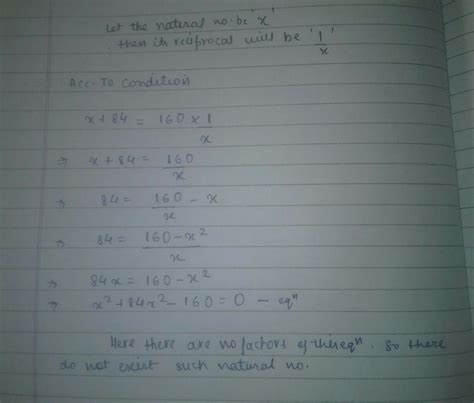 Let the natural no. be 'x'
then its reciprocal will be '1/x'
Acc. To condition
x + 84 = 160 × 1/x
⇒ x + 84 = 160/x
⇒ 84 = 160/x - x
⇒ 84 = 160 - x²/x
⇒ 84x = 160 - x²
⇒ x² + 84x² - 160 = 0 - eqⁿ
Here there are no factors of this eqⁿ. So there
do not exist such natural no.